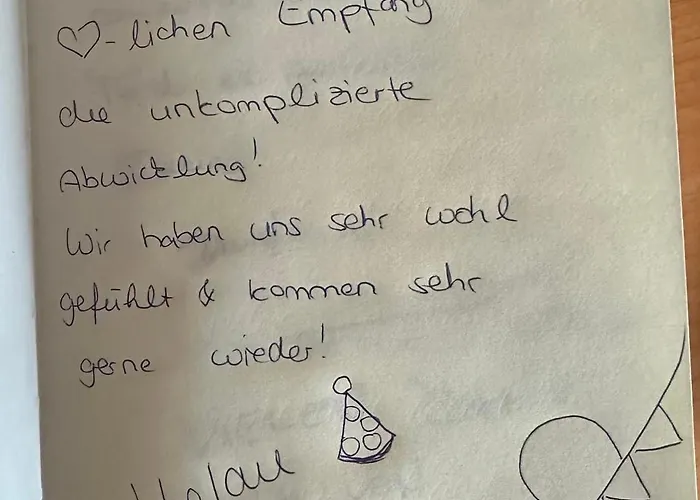 ♡-lichen Empfang
die unkomplizierte
Abwicklung!
Wir haben uns sehr wohl
gefühlt & kommen sehr
gerne wieder!